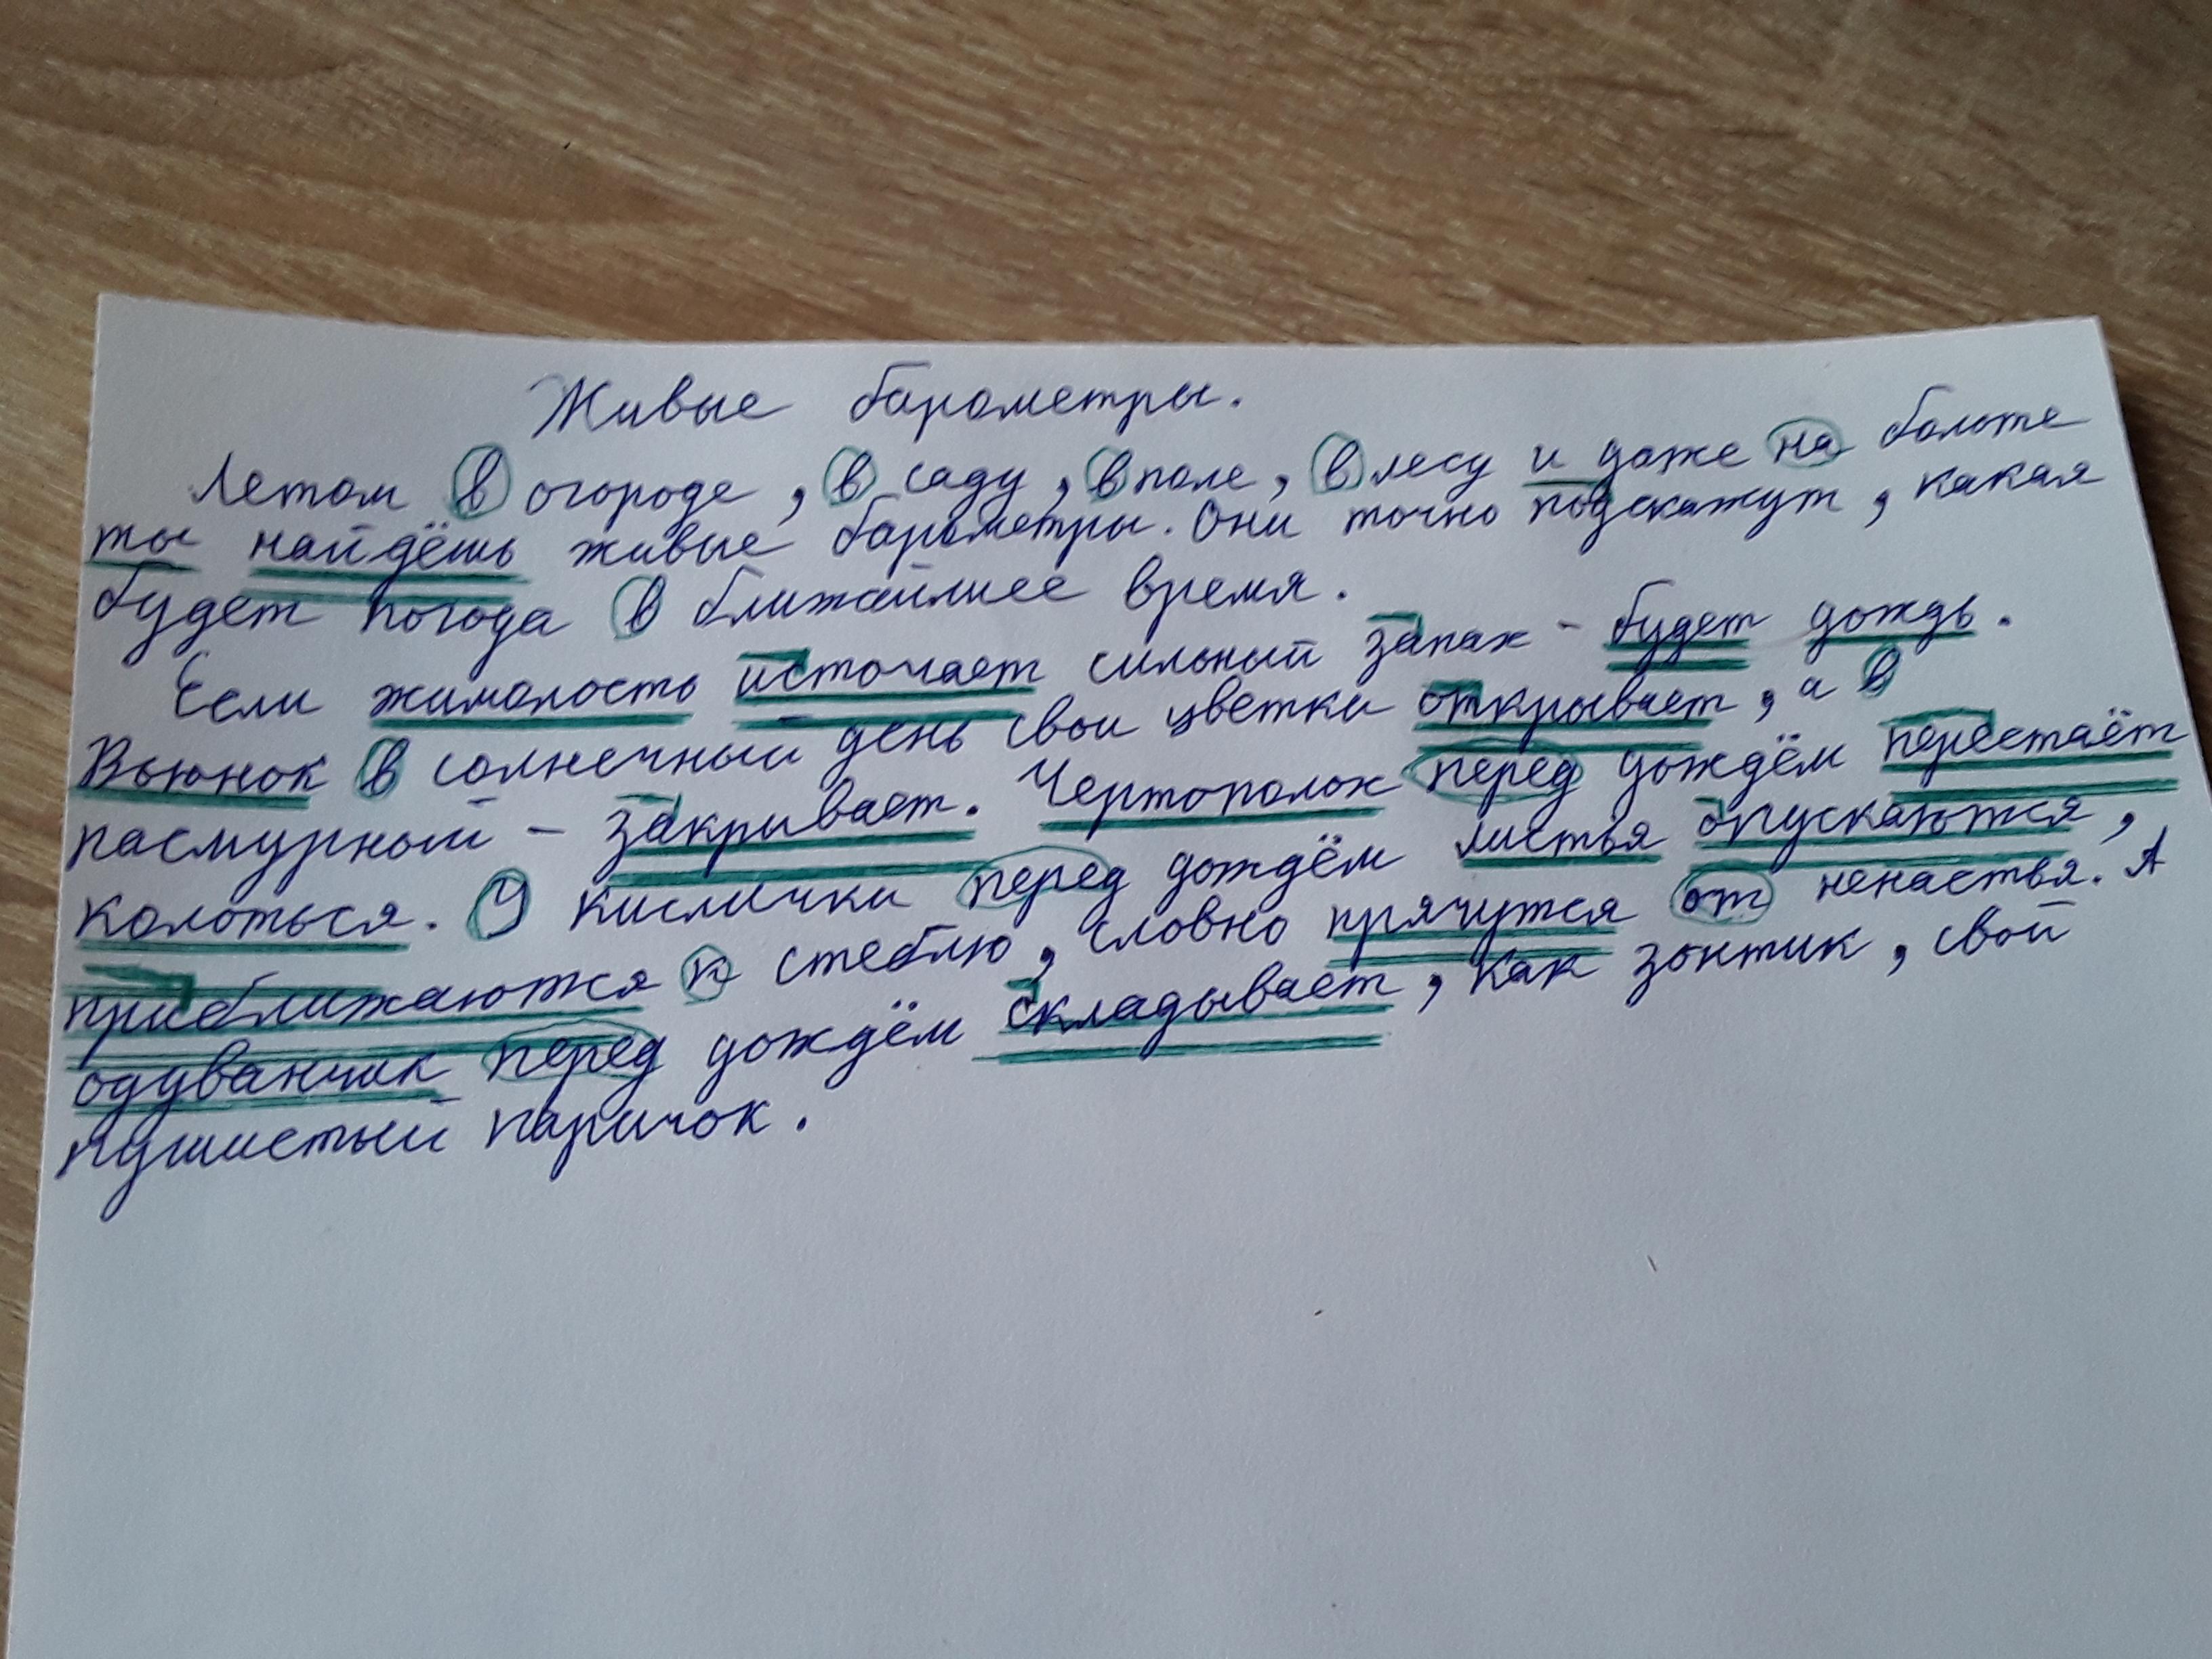 Живые барометры.
Летом в огороде, в саду, в поле, в лесу и даже на болоте
ты найдёшь живые барометры. Они точно подскажут, какая
будет погода в ближайшее время.
Если жимолость источает сильный запах - будет дождь.
Вьюнок в солнечный день свои цветки открывает, а в
пасмурный - закрывает. Чертополох перед дождём перестаёт
колоться. У кислички перед дождём листья опускаются,
приближаются к стеблю, словно прячутся от ненастья. А
одуванчик перед дождём складывает, как зонтик, свой
пушистый паричок.